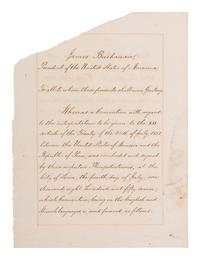 James Buchanan,
President of the United States of America,
To all to whom these presents shall come, Greeting:
Whereas a Convention with regard
to the interpretation to be given to the XII
article of the Treaty of the 26th of July 1851
between the United States of America and the
Republic of Peru, was concluded and signed
by their respective Plenipotentiaries, at the
City of Lima, the fourth day of July, one
thousand eight hundred and fifty seven;
which Convention, being in the English and
Spanish languages, is word for word as follows: